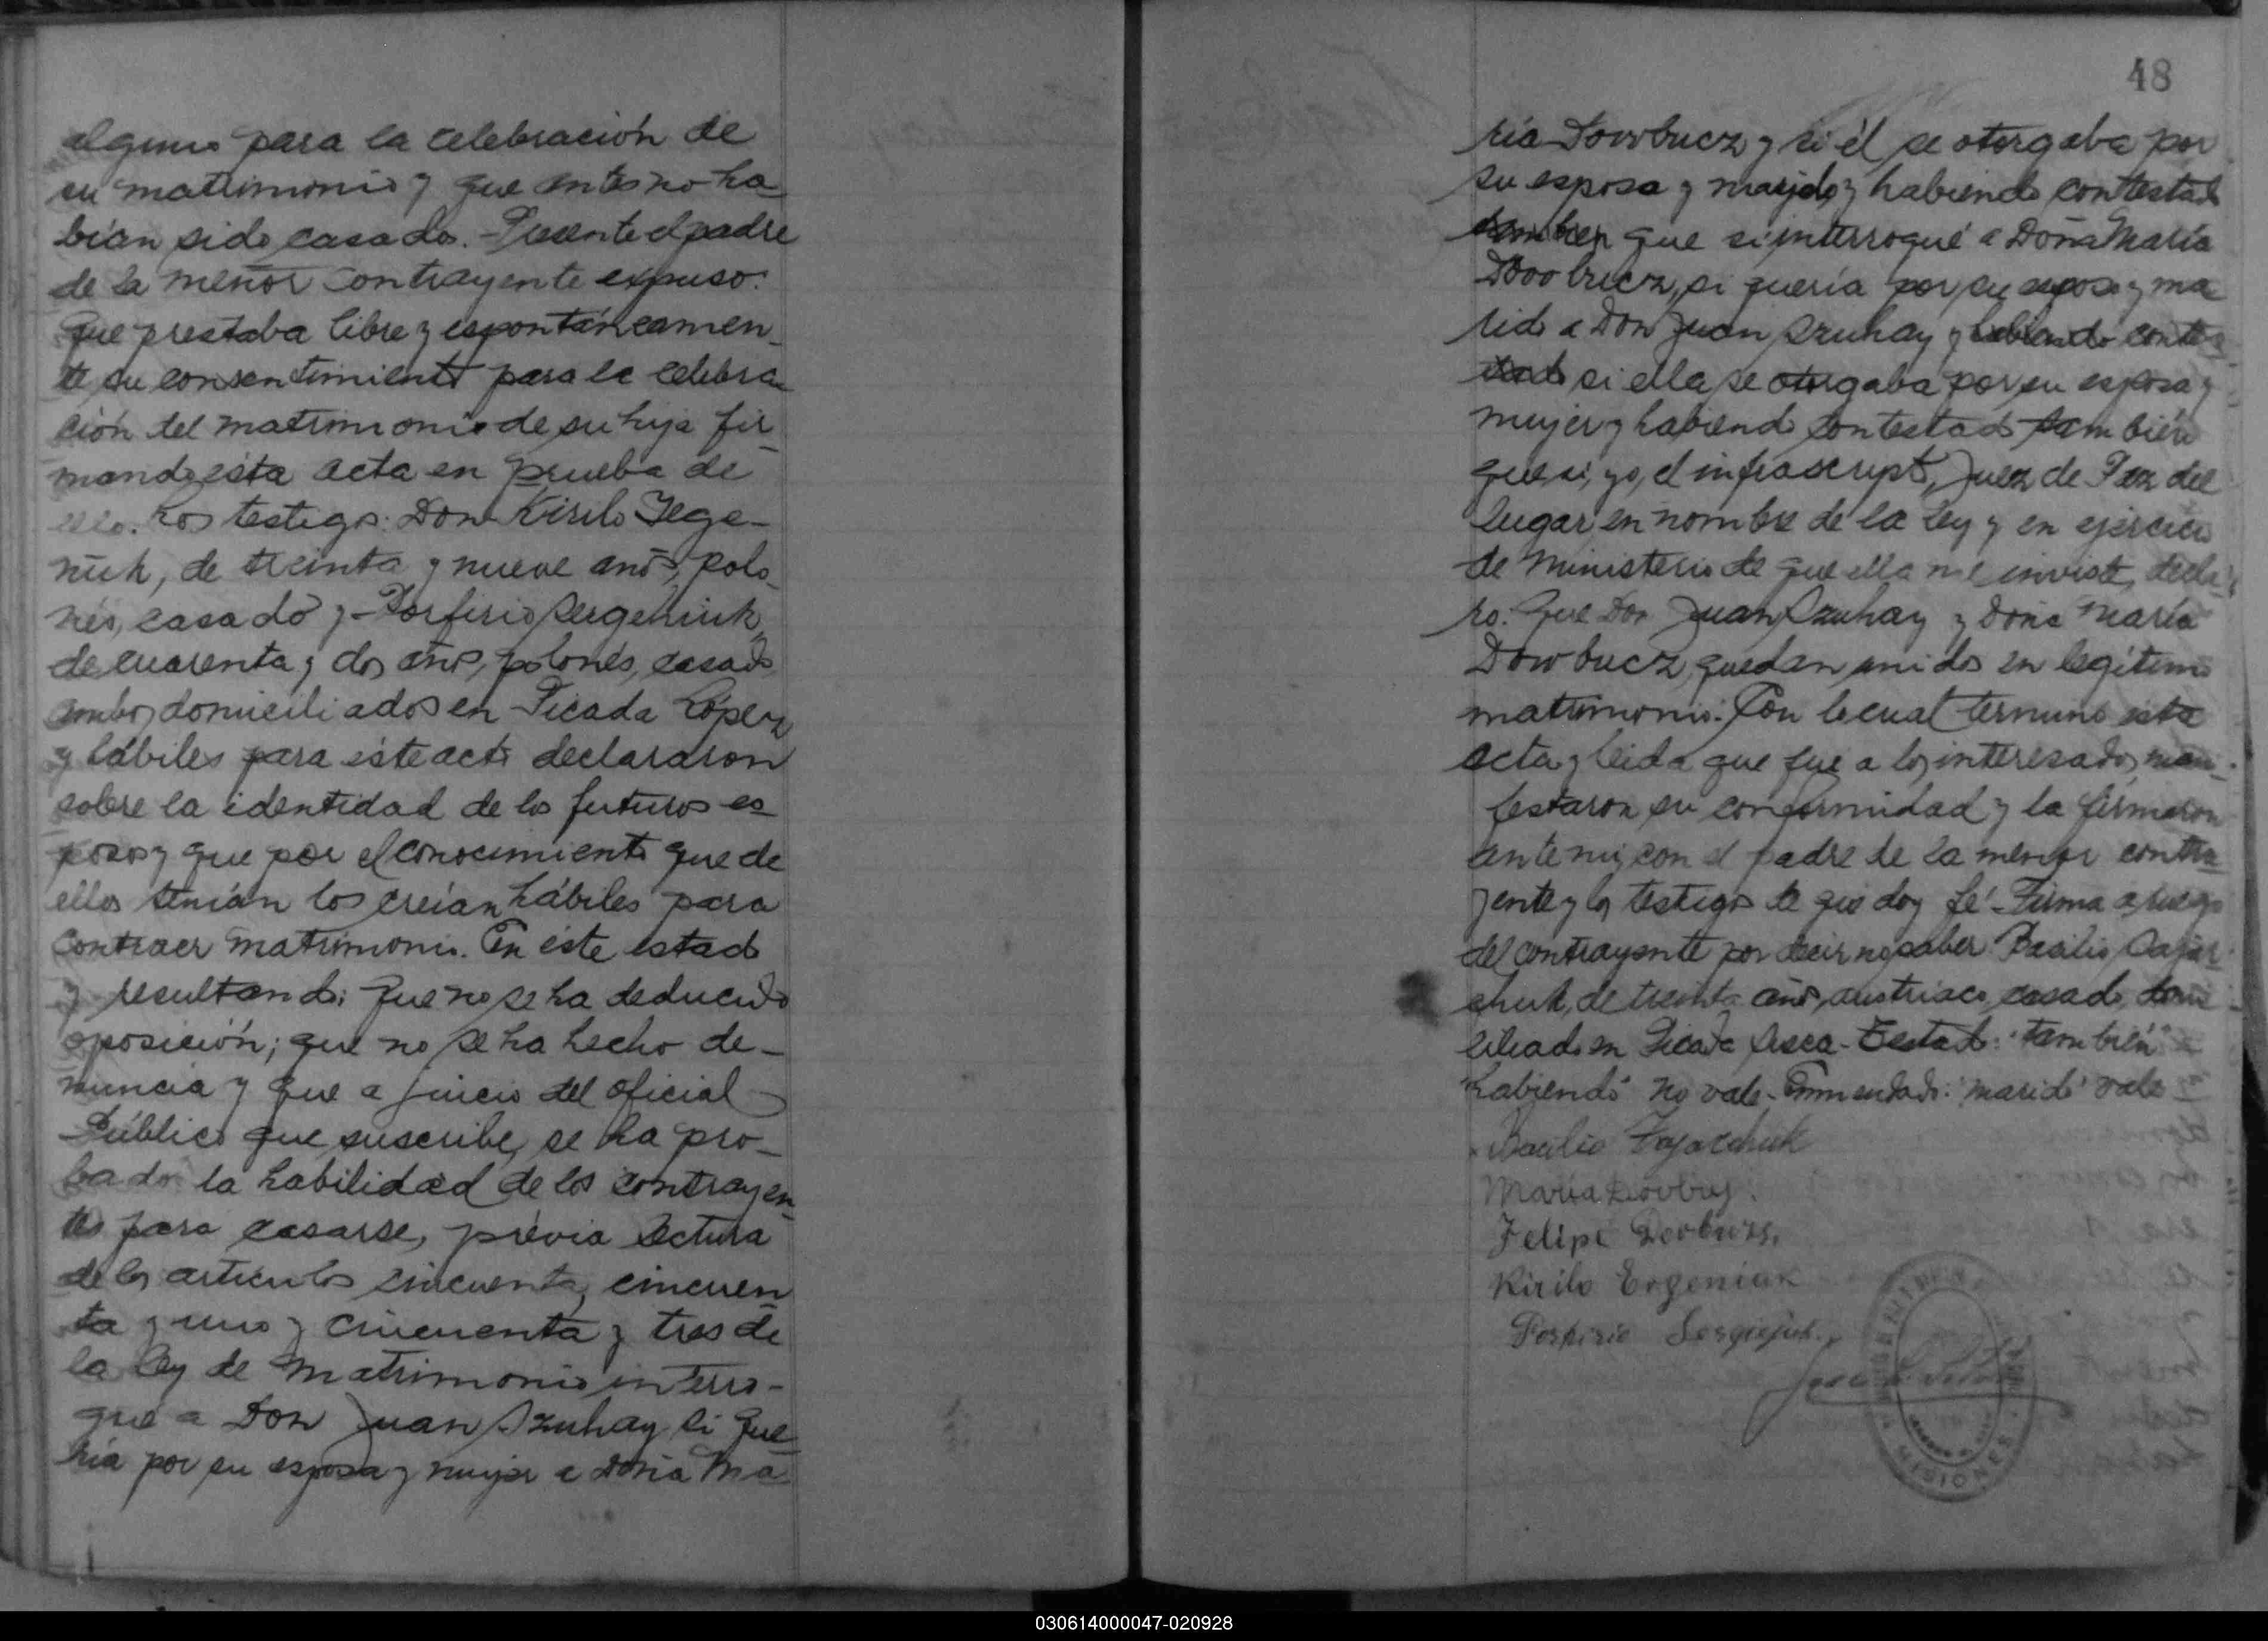 alguno para la celebración de
su matrimonio y que antes no ha
bían sido casados. - Presente el padre
de la menor contrayente expuso:
Que prestaba libre y espontáneamen_
te su consentimiento para la celebra_
ción del matrimonio de su hija fir_
mando ésta acta en prueba de
ello. Los testigos: Don Kirilo Jege-
niuk, de treinta y nueve años, polo_
nés, casado y Porfirio Sergeniuk,
de cuarenta y dos años, polonés, casado
ambos domiciliados en Picada López
y hábiles para éste acto declararon
sobre la identidad de los futuros es_
posos y que por el conocimiento que de
ellos tenían los creían hábiles para
contraer matrimonio. En éste estado
y resultando: Que no se ha deducido
oposición; que no se ha hecho de_
nuncia y que a juicio del oficial
Público que suscribe, se ha pro_
bado la habilidad de los contrayen_
tes para casarse, prévia lectura
de los artículos cincuenta, cincuen_
ta y uno y cincuenta y tres de
la ley de Matrimonio interro-
gué a Don Juan Szuhay si que_
ría por su esposa y mujer a Doña Ma_
48
ría Dowbucz y si él se otorgaba por
su esposa y marido y habiendo contestado
también que si interrogué a Doña María
Dowbucz, si quería por su esposo y ma_
rido a Don Juan Szuhay y habiendo contes_
tado si ella se otorgaba por su esposa y
mujer y habiendo contestado también
que si, yo, el infrascripto, Juez de Paz del
lugar, en nombre de la ley y en ejercicio
de Ministerio de que ella me inviste, decla_
ro: Que Don Juan Szuhay y Doña María
Dowbucz, quedan unidos en legítimo
matrimonio. Con lo cual terminó esta
acta y leida que fue a los interesados, mani_
festaron su conformidad y la firmaron
ante mi, con el padre de la menor contra_
yente y los testigos de que doy fé. - Firma a ruego
del contrayente por decir no saber Basilio Zajar_
chuk, de treinta años, austriaco, casado, domi
ciliado en Picada Seca - Testado: "también"
"habiendo" no vale - Enmendado: "marido" vale
Basilio Zajarchuk
María Dovbus.
Felipe Dovbuzs.
Kirilo Ergeniuk
Porfirio Sergiejuk.
MISIONES
030614000047-020928